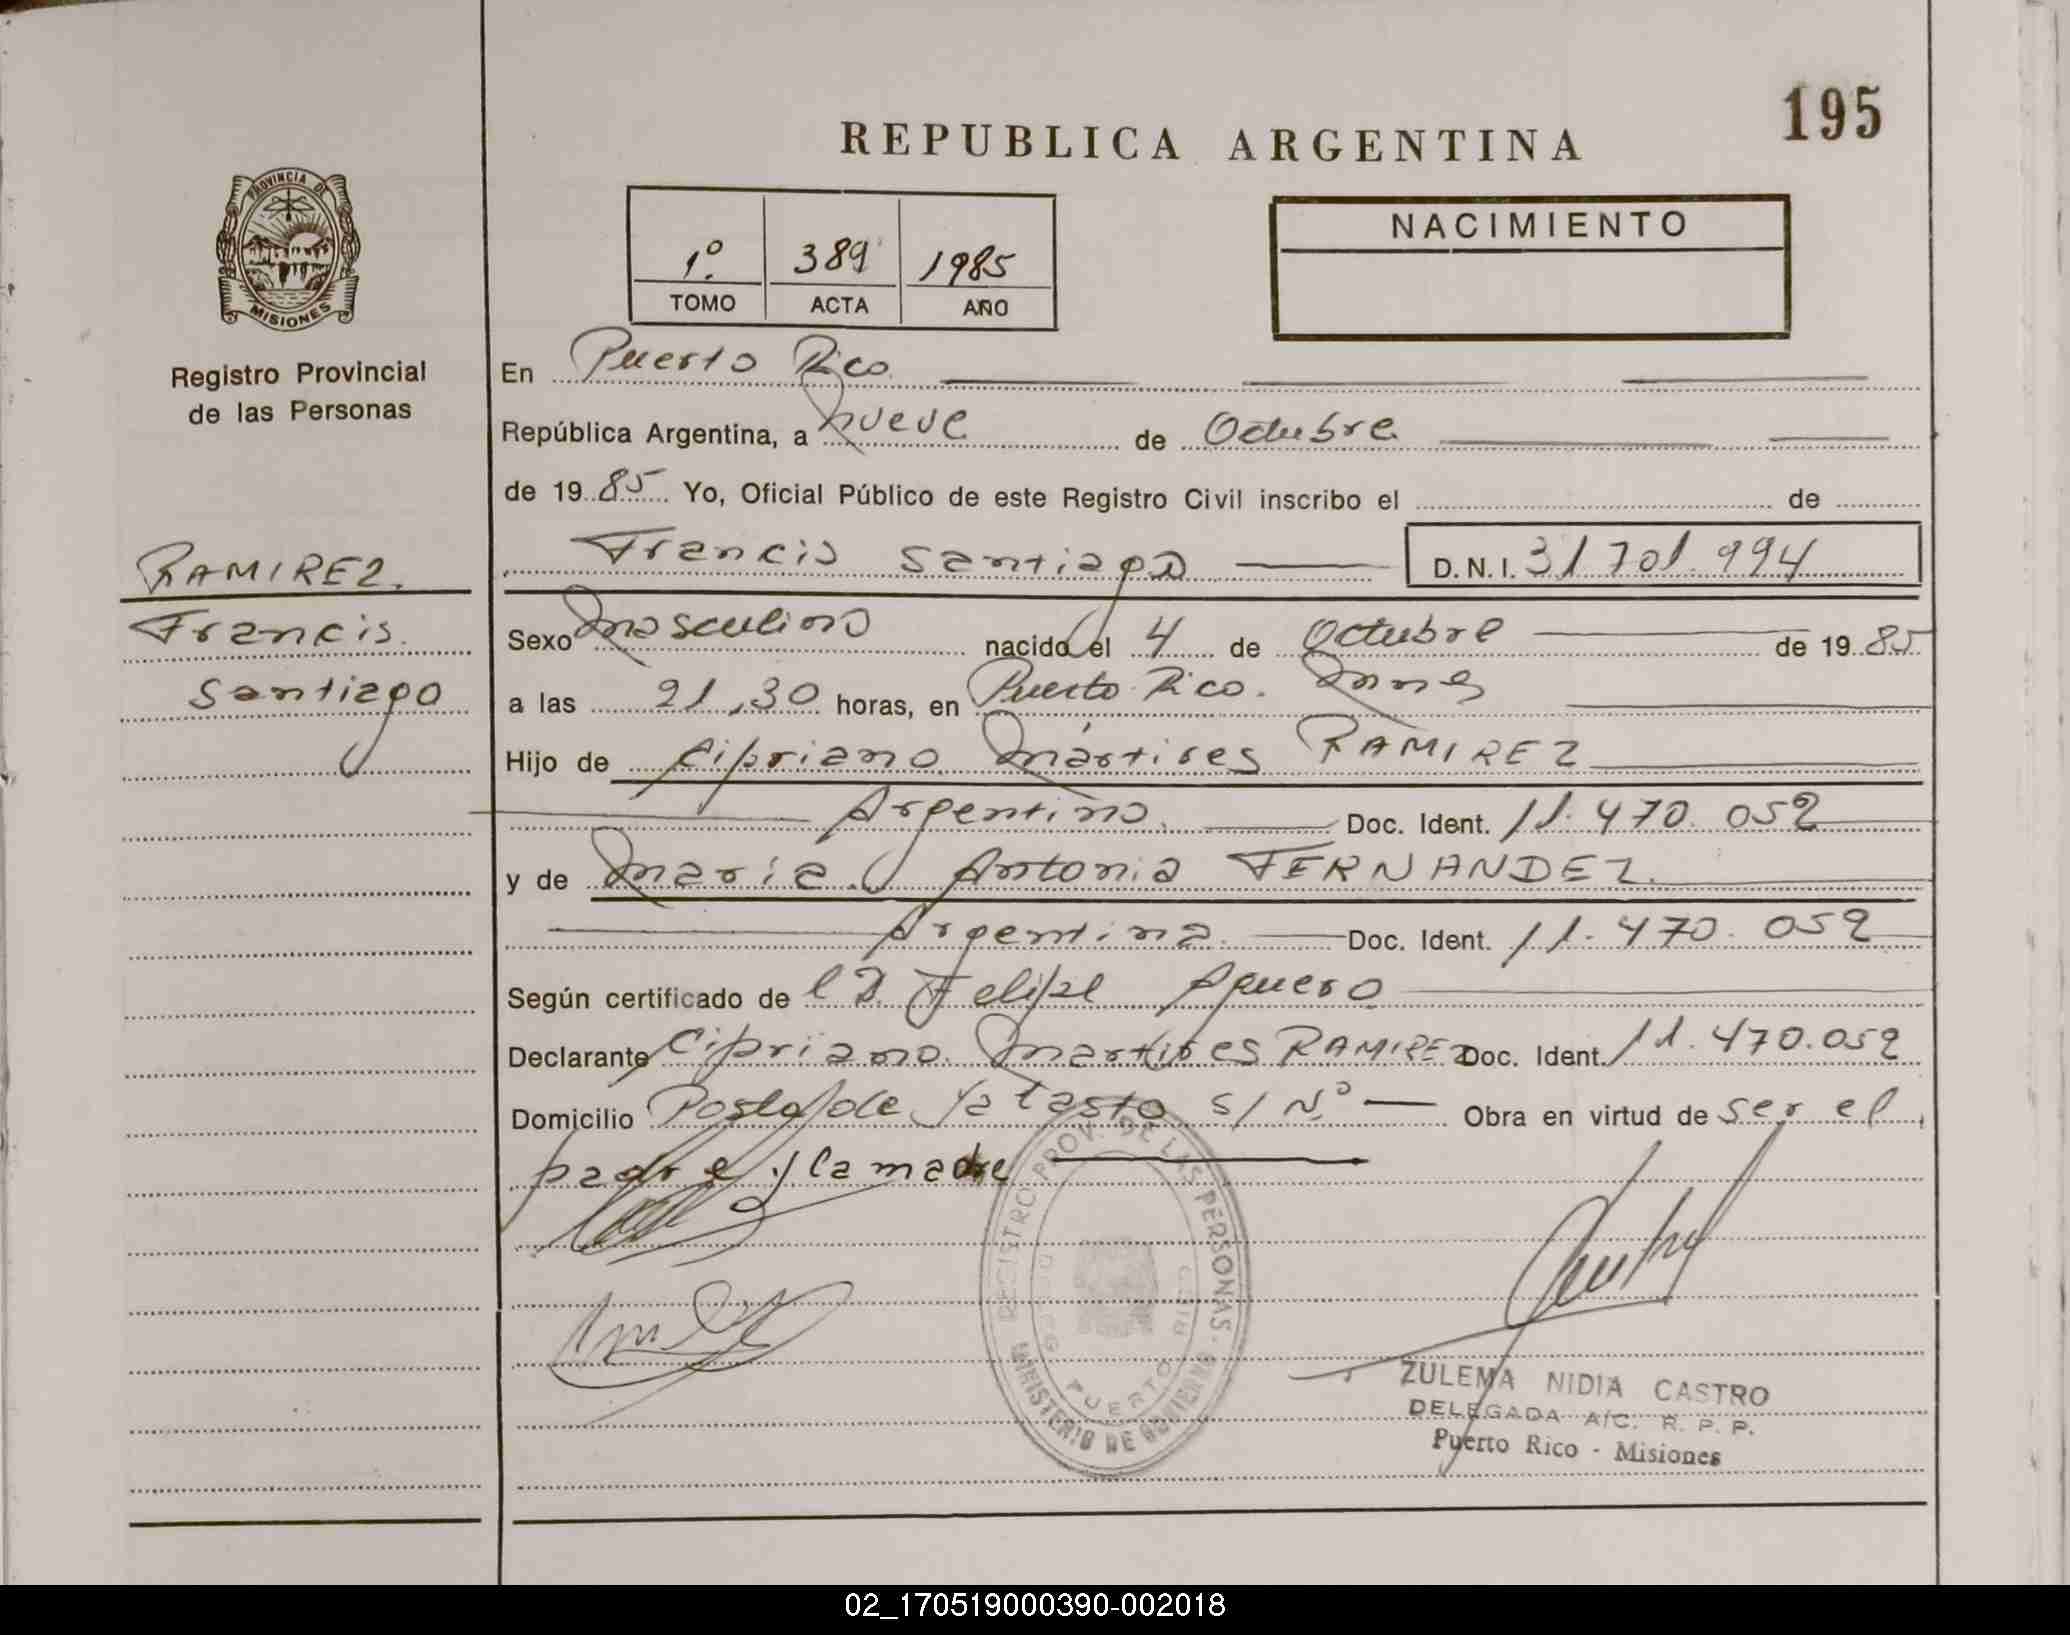 195
REPUBLICA ARGENTINA
PROVINCIA DE
MISIONES
Registro Provincial
de las Personas
1º 389 1985
TOMO ACTA AÑO
NACIMIENTO
En Puerto Rico
República Argentina, a nueve de Octubre
de 1985 Yo, Oficial Público de este Registro Civil inscribo el de
Francis Santiago D.N.I. 31 701.994
RAMIREZ.
Francis
Santiago
Sexo Masculino nacido el 4 de Octubre de 1985
a las 21,30 horas, en Puerto Rico. Mnes
Hijo de Cipriano Mártires RAMIREZ
Argentino. Doc. Ident. 11.470.052
y de María Antonia FERNANDEZ.
Argentina. Doc. Ident. 11.470.052
Según certificado de Felipe Aguero
Declarante Cipriano Martires RAMIREZ Doc. Ident. 11.470.052
Domicilio Posta de Yatasto S/Nº Obra en virtud de ser el
padre y la madre
REGISTRO PROV. DE LAS PERSONAS.
MINISTERIO DE GOBIERNO
PUERTO RICO
ZULEMA NIDIA CASTRO
DELEGADA A/C. R. P. P.
Puerto Rico - Misiones
02_170519000390-002018